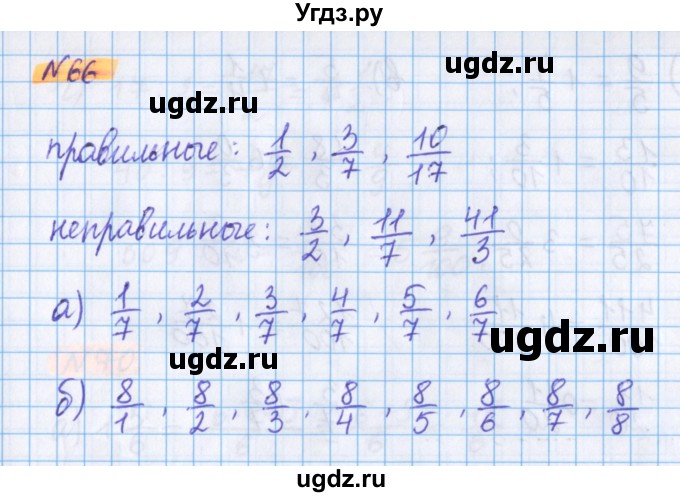 Угдз.ру
№66
ugdz.ru ugdz.ru
правильные: 1/2, 3/7, 10/17
неправильные: 3/2, 11/7, 41/3
ugdz.ru ugdz.ru
а) 1/7, 2/7, 3/7, 4/7, 5/7, 6/7
ugdz.ru ugdz.ru ugdz.ru
б) 8/1, 8/2, 8/3, 8/4, 8/5, 8/6, 8/7, 8/8
ugdz.ru ugdz.ru